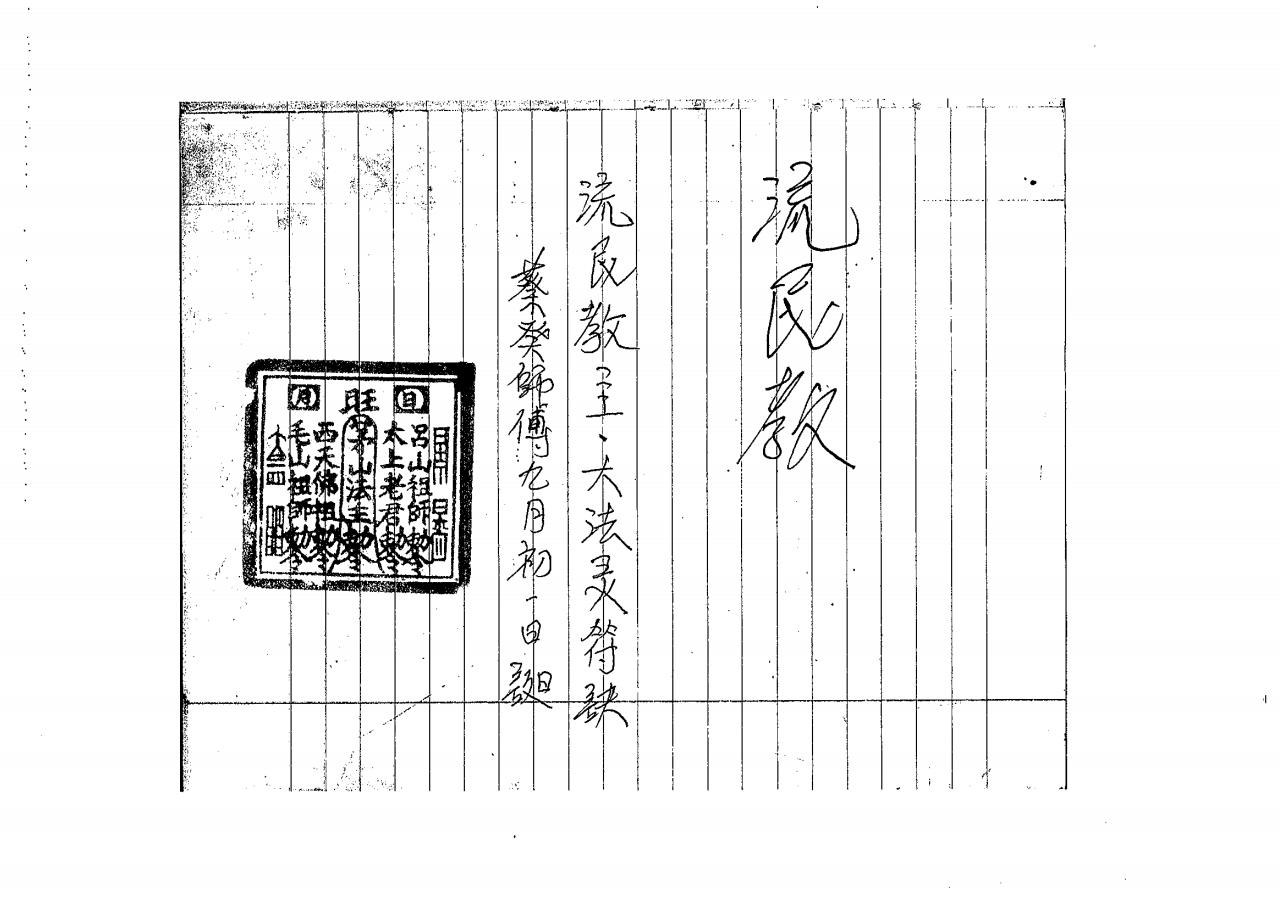 流民教
流民教主、大法灵符訣
蔡癸師傅九月初一日
日
旺
月
呂山祖師勅令
太上老君勅令
茅山法主勅令
西天佛祖勅令
毛山祖師勅令